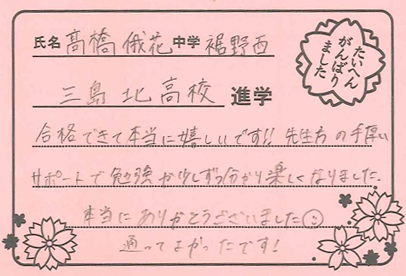 氏名 髙橋 俄花 中学 裾野西
たいへん
がんばり
ました
三島北高校 進学
合格できて本当に嬉しいです!! 先生方の手厚い
サポートで勉強が少しずつ分かり楽しくなりました.
本当にありがとうございました☺
通ってよかったです!